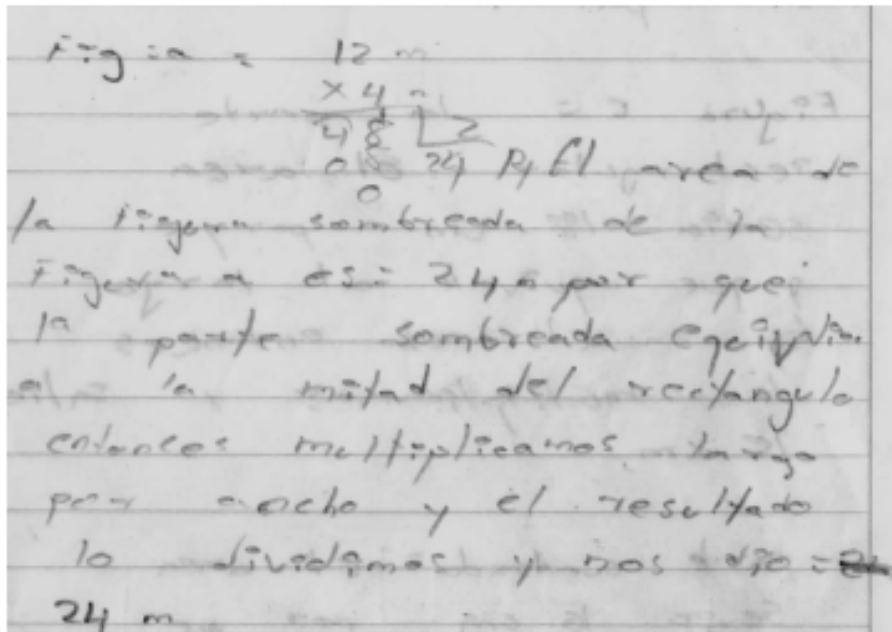 Fig = a = 12 m
x 4 m
48 | 2
08 24 R/ El area de
0
la figura sombreada de la
Figura a es = 24 m por que
la parte sombreada equivale
a la mitad del rectangulo
entonces multiplicamos largo
por ancho y el resultado
lo dividimos y nos dio =
24 m